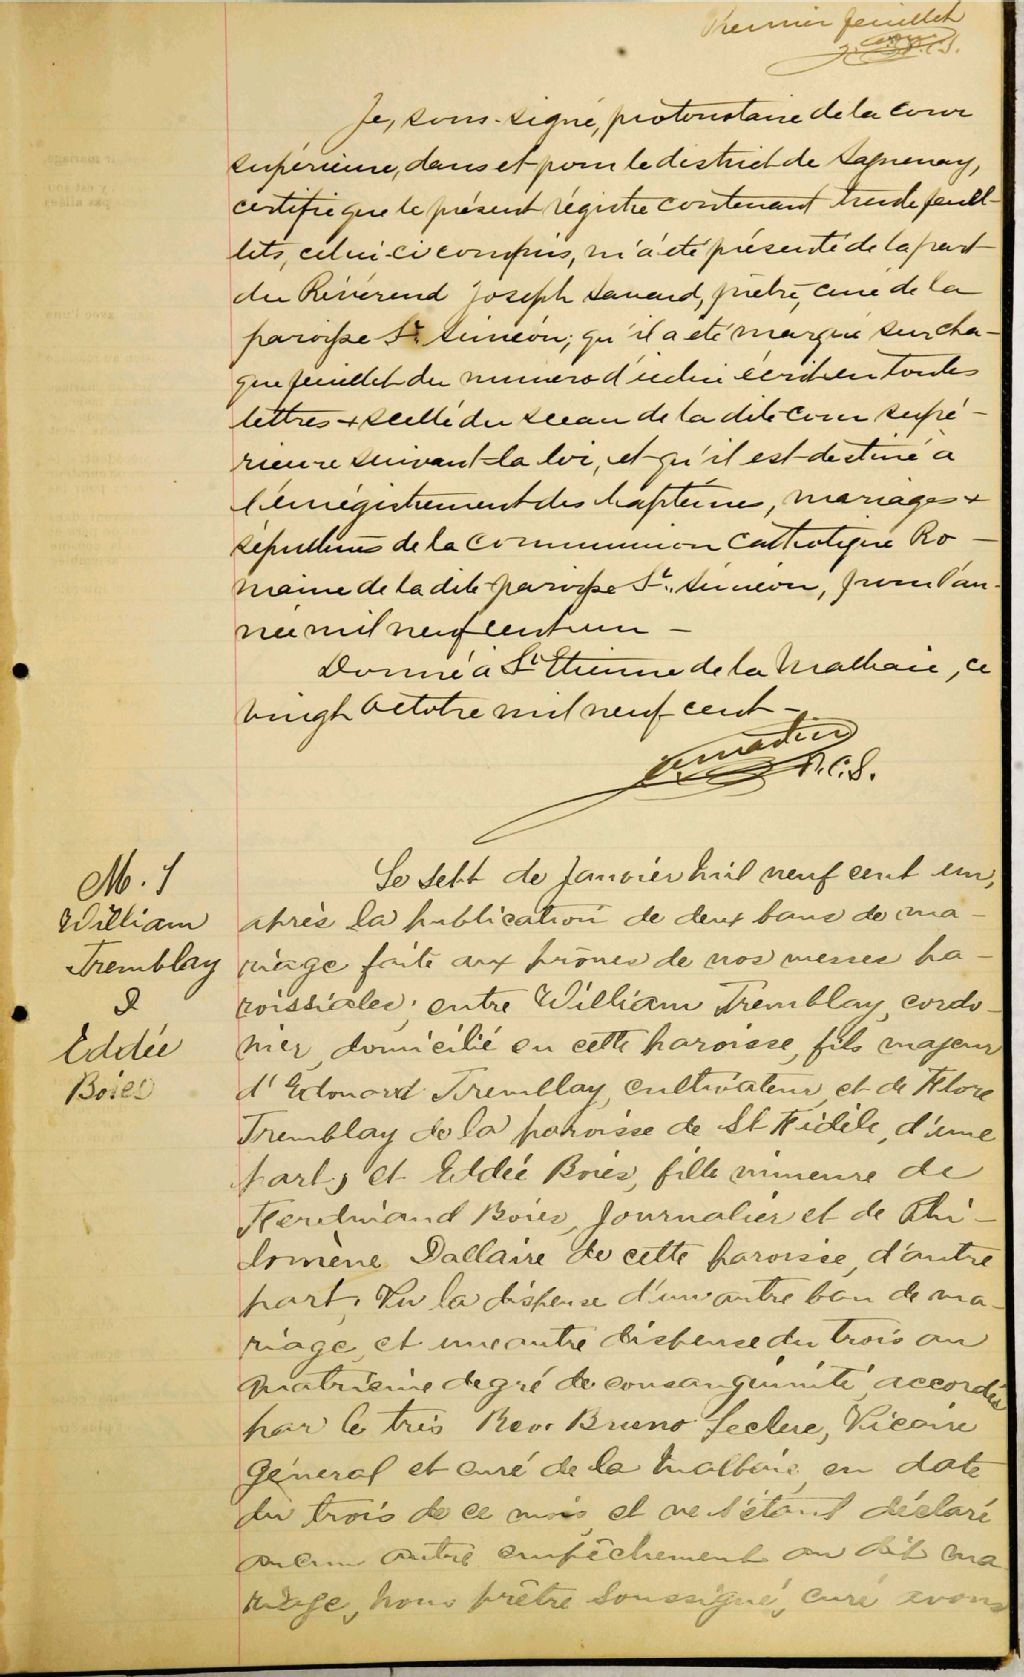 Premier feuillet
P.C.S.
Je, sous-signé, protonotaire de la cour
supérieure, dans et pour le district de Saguenay,
certifie que le présent régistre contenant trente feuil-
lets, celui-ci compris, m'a été présenté de la part
du Révérend Joseph Savard, prêtre, curé de la
paroisse St. Siméon; qu'il a été marqué sur cha-
que feuillet du numero d'icelui écrit en toutes
lettres + scellé du sceau de la dite cour supé-
rieure suivant la loi, et qu'il est destiné à
l'enrégistrement des baptêmes, mariages +
sépultures de la communion catholique Ro-
maine de la dite paroisse St. Siméon, pour l'an-
née mil neuf cent un —
Donné à St Etienne de la Malbaie, ce
vingt octobre mil neuf cent —
P.C.S.
M. 1
William
Tremblay
&
Eddée
Boies
Le sept de Janvier mil neuf cent un,
après la publication de deux bans de ma-
riage faite aux prônes de nos messes pa-
roissiales; entre William Tremblay, cordo-
nier, domicilié en cette paroisse, fils majeur
d'Edouard Tremblay, cultivateur, et de Flore
Tremblay de la paroisse de St Fidèle, d'une
part, et Eddée Boies, fille mineure de
Ferdinand Boies, Journalier et de Phi-
lomène Dallaire de cette paroisse, d'autre
part, Vu la dispense d'un autre ban de ma-
riage, et une autre dispense du trois au
quatrième degré de consanguinité, accordés
par le très Rev. Bruno Leclerc, Vicaire
Général et curé de la Malbaie, en date
du trois de ce mois, et ne s'étant déclaré
aucun autre empêchement au dit ma
riage, nous prêtre soussigné, curé avons